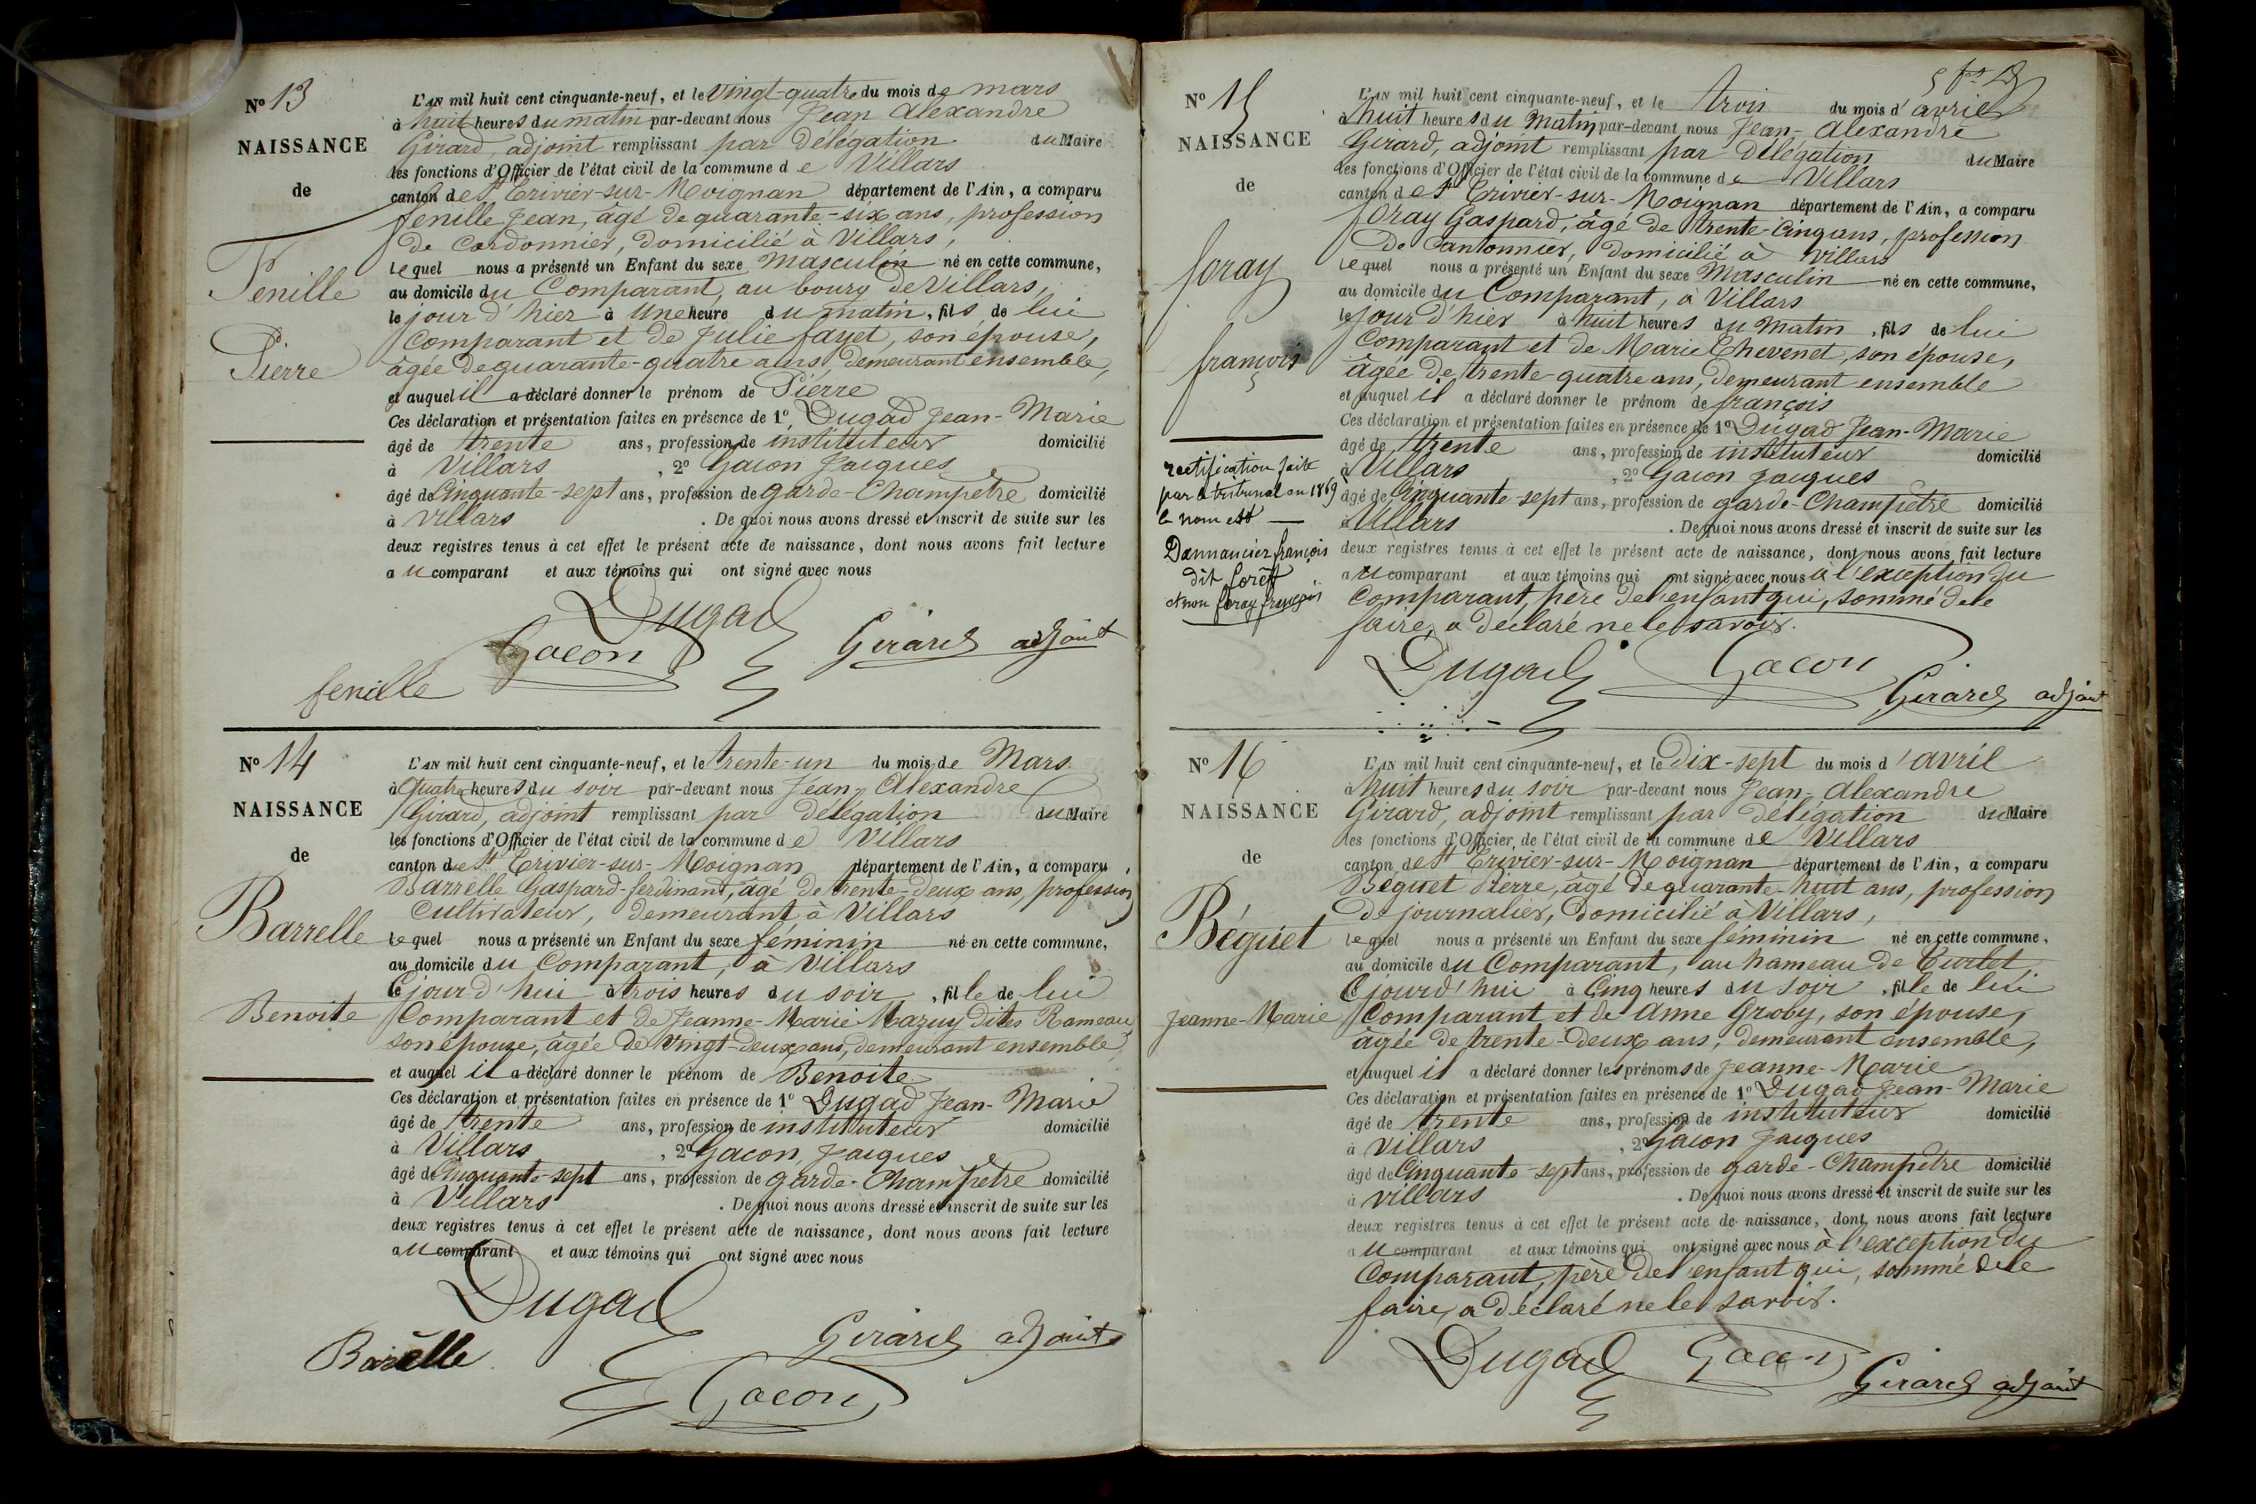 N° 13
NAISSANCE
de
Fenille
Pierre
L'AN mil huit cent cinquante-neuf, et le vingt-quatre du mois de mars
à huit heures du matin par-devant nous Jean Alexandre
Girard, adjoint remplissant par délégation du Maire
les fonctions d'Officier de l'état civil de la commune de Villars
canton de St Trivier-sur-Moignan département de l'Ain, a comparu
fenille Jean, âgé de quarante-six ans, profession
de Cordonnier, domicilié à Villars,
lequel nous a présenté un Enfant du sexe masculin né en cette commune,
au domicile du Comparant, au bourg de Villars,
le jour d'hier à une heure du matin, fils de lui
Comparant et de Julie fayet, son épouse,
âgée de quarante-quatre ans demeurant ensemble,
et auquel il a déclaré donner le prénom de Pierre
Ces déclaration et présentation faites en présence de 1° Dugad Jean-Marie
âgé de trente ans, profession de instituteur domicilié
à Villars, 2° Gacon Jacques
âgé de Cinquante-sept ans, profession de garde-Champêtre domicilié
à Villars. De quoi nous avons dressé et inscrit de suite sur les
deux registres tenus à cet effet le présent acte de naissance, dont nous avons fait lecture
au comparant et aux témoins qui ont signé avec nous
Dugad
Gacon Girard adjoint
fenille
N° 14
NAISSANCE
de
Barrelle
Benoite
L'AN mil huit cent cinquante-neuf, et le trente-un du mois de Mars
à quatre heures du soir par-devant nous Jean Alexandre
Girard, adjoint remplissant par délégation du Maire
les fonctions d'Officier de l'état civil de la commune de Villars
canton de St Trivier-sur-Moignan département de l'Ain, a comparu
Barrelle Gaspard-ferdinand, âgé de trente-deux ans, profession
Cultivateur, demeurant à Villars
lequel nous a présenté un Enfant du sexe féminin né en cette commune,
au domicile du Comparant, à Villars
Cejourd'hui à trois heures du soir, fille de lui
Comparant et de Jeanne-Marie Mazuy dites Rameau
son épouse, âgée de vingt-deux ans, demeurant ensemble,
et auquel il a déclaré donner le prénom de Benoite
Ces déclaration et présentation faites en présence de 1° Dugad Jean-Marie
âgé de trente ans, profession de instituteur domicilié
à Villars, 2° Gacon Jacques
âgé de Cinquante-sept ans, profession de garde-Champêtre domicilié
à Villars. De quoi nous avons dressé et inscrit de suite sur les
deux registres tenus à cet effet le présent acte de naissance, dont nous avons fait lecture
au comparant et aux témoins qui ont signé avec nous
Dugad
Barelle Girard adjoint
Gacon
N° 15
NAISSANCE
de
foray
françois
rectification faite
par le tribunal en 1869
le nom est
Dannancier françois
dit forêt
et non foray françois
L'AN mil huit cent cinquante-neuf, et le trois du mois d'avril
à huit heures du matin par-devant nous Jean-Alexandre
Girard, adjoint remplissant par délégation du Maire
les fonctions d'Officier de l'état civil de la commune de Villars
canton de St Trivier-sur-Moignan département de l'Ain, a comparu
foray Gaspard, âgé de trente-cinq ans, profession
de Cantonnier, domicilié à Villars
lequel nous a présenté un Enfant du sexe Masculin né en cette commune,
au domicile du Comparant, à Villars
le jour d'hier à huit heures du matin, fils de lui
Comparant et de Marie Chevenet, son épouse,
âgée de trente-quatre ans, demeurant ensemble
et auquel il a déclaré donner le prénom de françois
Ces déclaration et présentation faites en présence de 1° Dugad Jean-Marie
âgé de trente ans, profession de instituteur domicilié
à Villars, 2° Gacon Jacques
âgé de Cinquante-sept ans, profession de garde-Champêtre domicilié
à Villars. De quoi nous avons dressé et inscrit de suite sur les
deux registres tenus à cet effet le présent acte de naissance, dont nous avons fait lecture
au comparant et aux témoins qui ont signé avec nous à l'exception du
Comparant, père de l'enfant qui, sommé de le
faire, a déclaré ne le savoir.
Dugad Gacon
Girard adjoint
N° 16
NAISSANCE
de
Béguet
Jeanne-Marie
L'AN mil huit cent cinquante-neuf, et le dix-sept du mois d'avril
à huit heures du soir par-devant nous Jean-Alexandre
Girard, adjoint remplissant par délégation du Maire
les fonctions d'Officier de l'état civil de la commune de Villars
canton de St Trivier-sur-Moignan département de l'Ain, a comparu
Béguet Pierre, âgé de quarante-huit ans, profession
de journalier, domicilié à Villars,
lequel nous a présenté un Enfant du sexe féminin né en cette commune,
au domicile du Comparant, au hameau de Curlet,
Cejourd'hui à Cinq heures du soir, fille de lui
Comparant et de Anne Groby, son épouse,
âgée de trente-deux ans, demeurant ensemble,
et auquel il a déclaré donner les prénoms de Jeanne-Marie
Ces déclaration et présentation faites en présence de 1° Dugad Jean-Marie
âgé de trente ans, profession de instituteur domicilié
à Villars, 2° Gacon Jacques
âgé de Cinquante-sept ans, profession de garde-Champêtre domicilié
à Villars. De quoi nous avons dressé et inscrit de suite sur les
deux registres tenus à cet effet le présent acte de naissance, dont nous avons fait lecture
au comparant et aux témoins qui ont signé avec nous à l'exception du
Comparant, père de l'enfant qui, sommé de le
faire, a déclaré ne le savoir.
Dugad Gacon
Girard adjoint